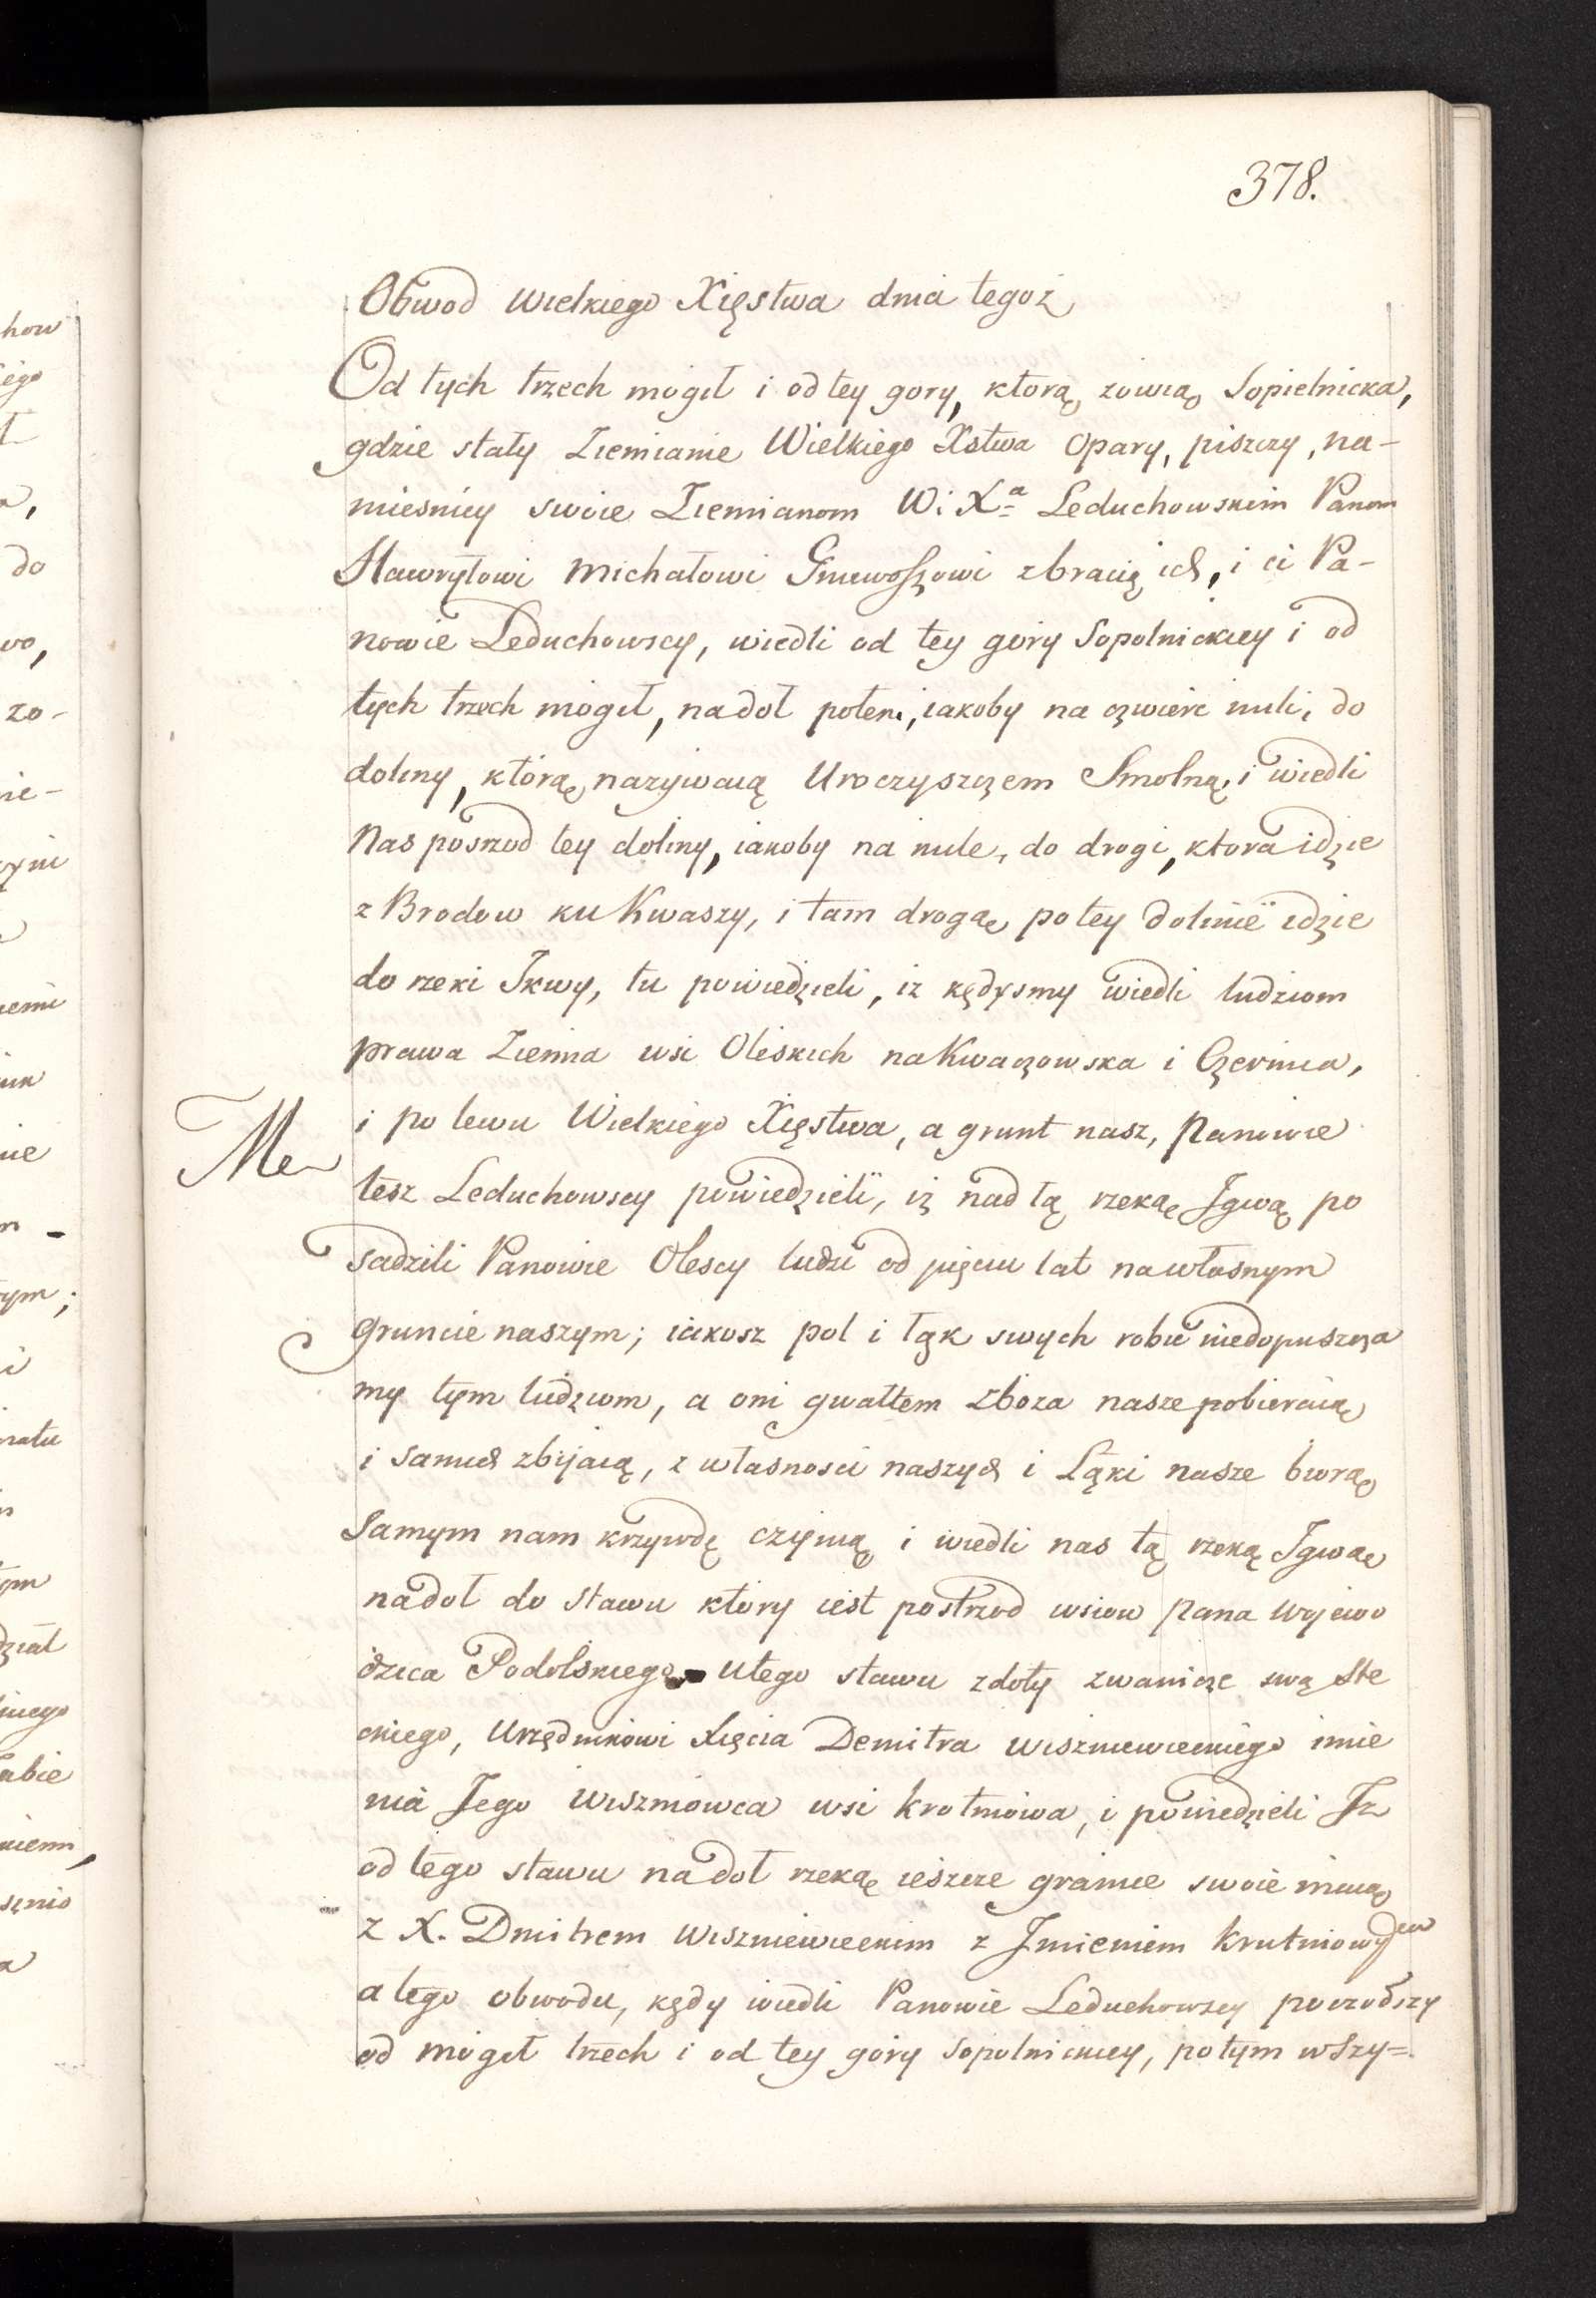 378.
Obwod Wielkiego Xięstwa dnia tegoż
Od tych trzech mogił i od tey gory, ktorą zowią Sopielnicka,
gdzie stały Ziemianie Wielkiego Xstwa Opary, piszczy, na-
miesnicy swoie Ziemianom W: Xª Leduchowskim Panom
Hawryłowi Michałowi Gniewoszowi z bracią ich, i ci Pa-
nowie Leduchowscy, wiedli od tey gory Sopolnickiey i od
tych trzech mogił, na doł polem, iakoby na czwierc mili, do
doliny, ktorą nazywaią Uroczyszczem Smolną, i wiedli
Nas posrzod tey doliny, iakoby na mile, do drogi, ktora idzie
z Brodow ku Kwaszy, i tam drogą po tey dolinie idzie
do rzeki Ikwy, tu powiedzieli, iz kędysmy wiedli ludziom
prawa Ziemia wsi Oleskich na Kwaczowska i Czernica,
i po lewu Wielkiego Xięstwa, a grunt nasz, Panowie
tesz Leduchowscy powiedzieli, iż nad tą rzeką Igwą po
sadzili Panowie Olescy ludzi od pięciu lat na własnym
gruncie naszym; iakosz pol i łąk swych robic niedopuszcza
my tym ludziom, a oni gwałtem zboza nasze pobieraią
i samich zbijaią, z własnosci naszych i Łąki nasze biorą
Samym nam krzywdę czynią i wiedli nas tą rzeką Igwą
na doł do stawu ktory iest postrzod wsiow Pana Wojewo
dzica Podolskiego U tego stawu zdoły zwanicze swą Ste
ckiego, Urzędnikowi Xięcia Demitra Wiszniewieckiego imie
nia Jego Wiszniowca wsi Krotniowa, i powiedzieli Iz
od tego stawu na doł rzeką ieszcze granice swoie maią
z X. Dmitrem Wiszniewieckim z Imieniem Krutniowym
a tego obwodu, kędy wiedli Panowie Leduchowscy poczowszy
od mogił trzech i od tey gory Sopolnickiey, potym wszy=